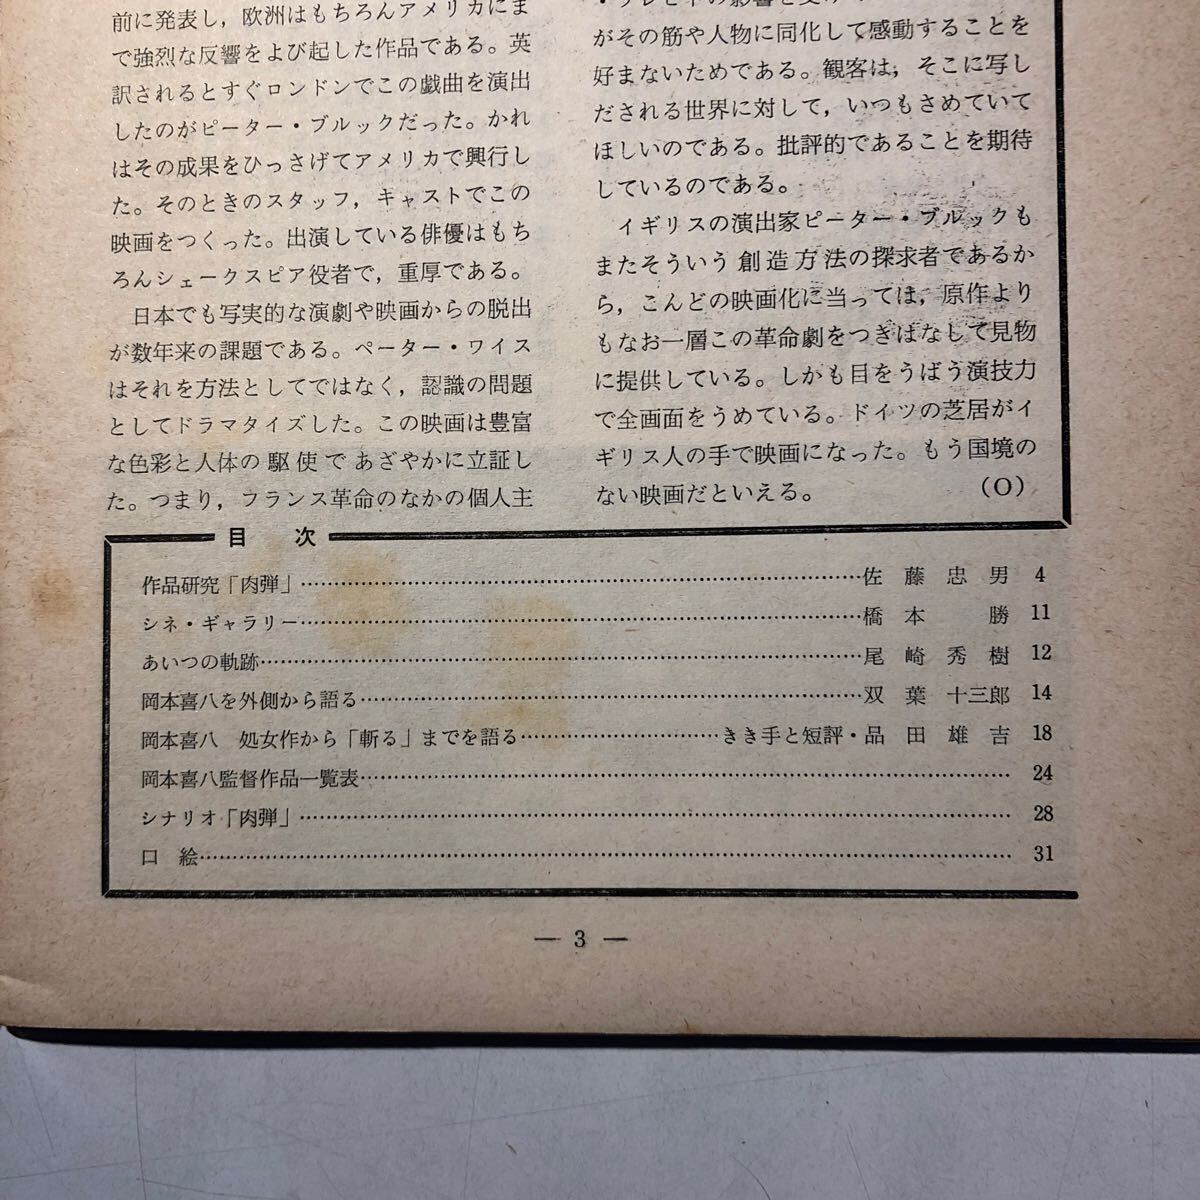 前に発表し，欧洲はもちろんアメリカにま
で強烈な反響をよび起した作品である。英
訳されるとすぐロンドンでこの戯曲を演出
したのがピーター・ブルックだった。かれ
はその成果をひっさげてアメリカで興行し
た。そのときのスタッフ，キャストでこの
映画をつくった。出演している俳優はもち
ろんシェークスピア役者で，重厚である。
日本でも写実的な演劇や映画からの脱出
が数年来の課題である。ペーター・ワイス
はそれを方法としてではなく，認識の問題
としてドラマタイズした。この映画は豊富
な色彩と人体の駆使であざやかに立証し
た。つまり，フランス革命のなかの個人主
がその筋や人物に同化して感動することを
好まないためである。観客は，そこに写し
だされる世界に対して，いつもさめていて
ほしいのである。批評的であることを期待
しているのである。
イギリスの演出家ピーター・ブルックも
またそういう創造方法の探求者であるか
ら，こんどの映画化に当っては，原作より
もなお一層この革命劇をつきはなして見物
に提供している。しかも目をうばう演技力
で全画面をうめている。ドイツの芝居がイ
ギリス人の手で映画になった。もう国境の
ない映画だといえる。 （O）
目 次
作品研究「肉弾」……佐藤忠男 4
シネ・ギャラリー……橋本 勝 11
あいつの軌跡……尾崎秀樹 12
岡本喜八を外側から語る……双葉十三郎 14
岡本喜八 処女作から「斬る」までを語る……きき手と短評・品田雄吉 18
岡本喜八監督作品一覧表…… 24
シナリオ「肉弾」…… 28
口 絵…… 31
— 3 —